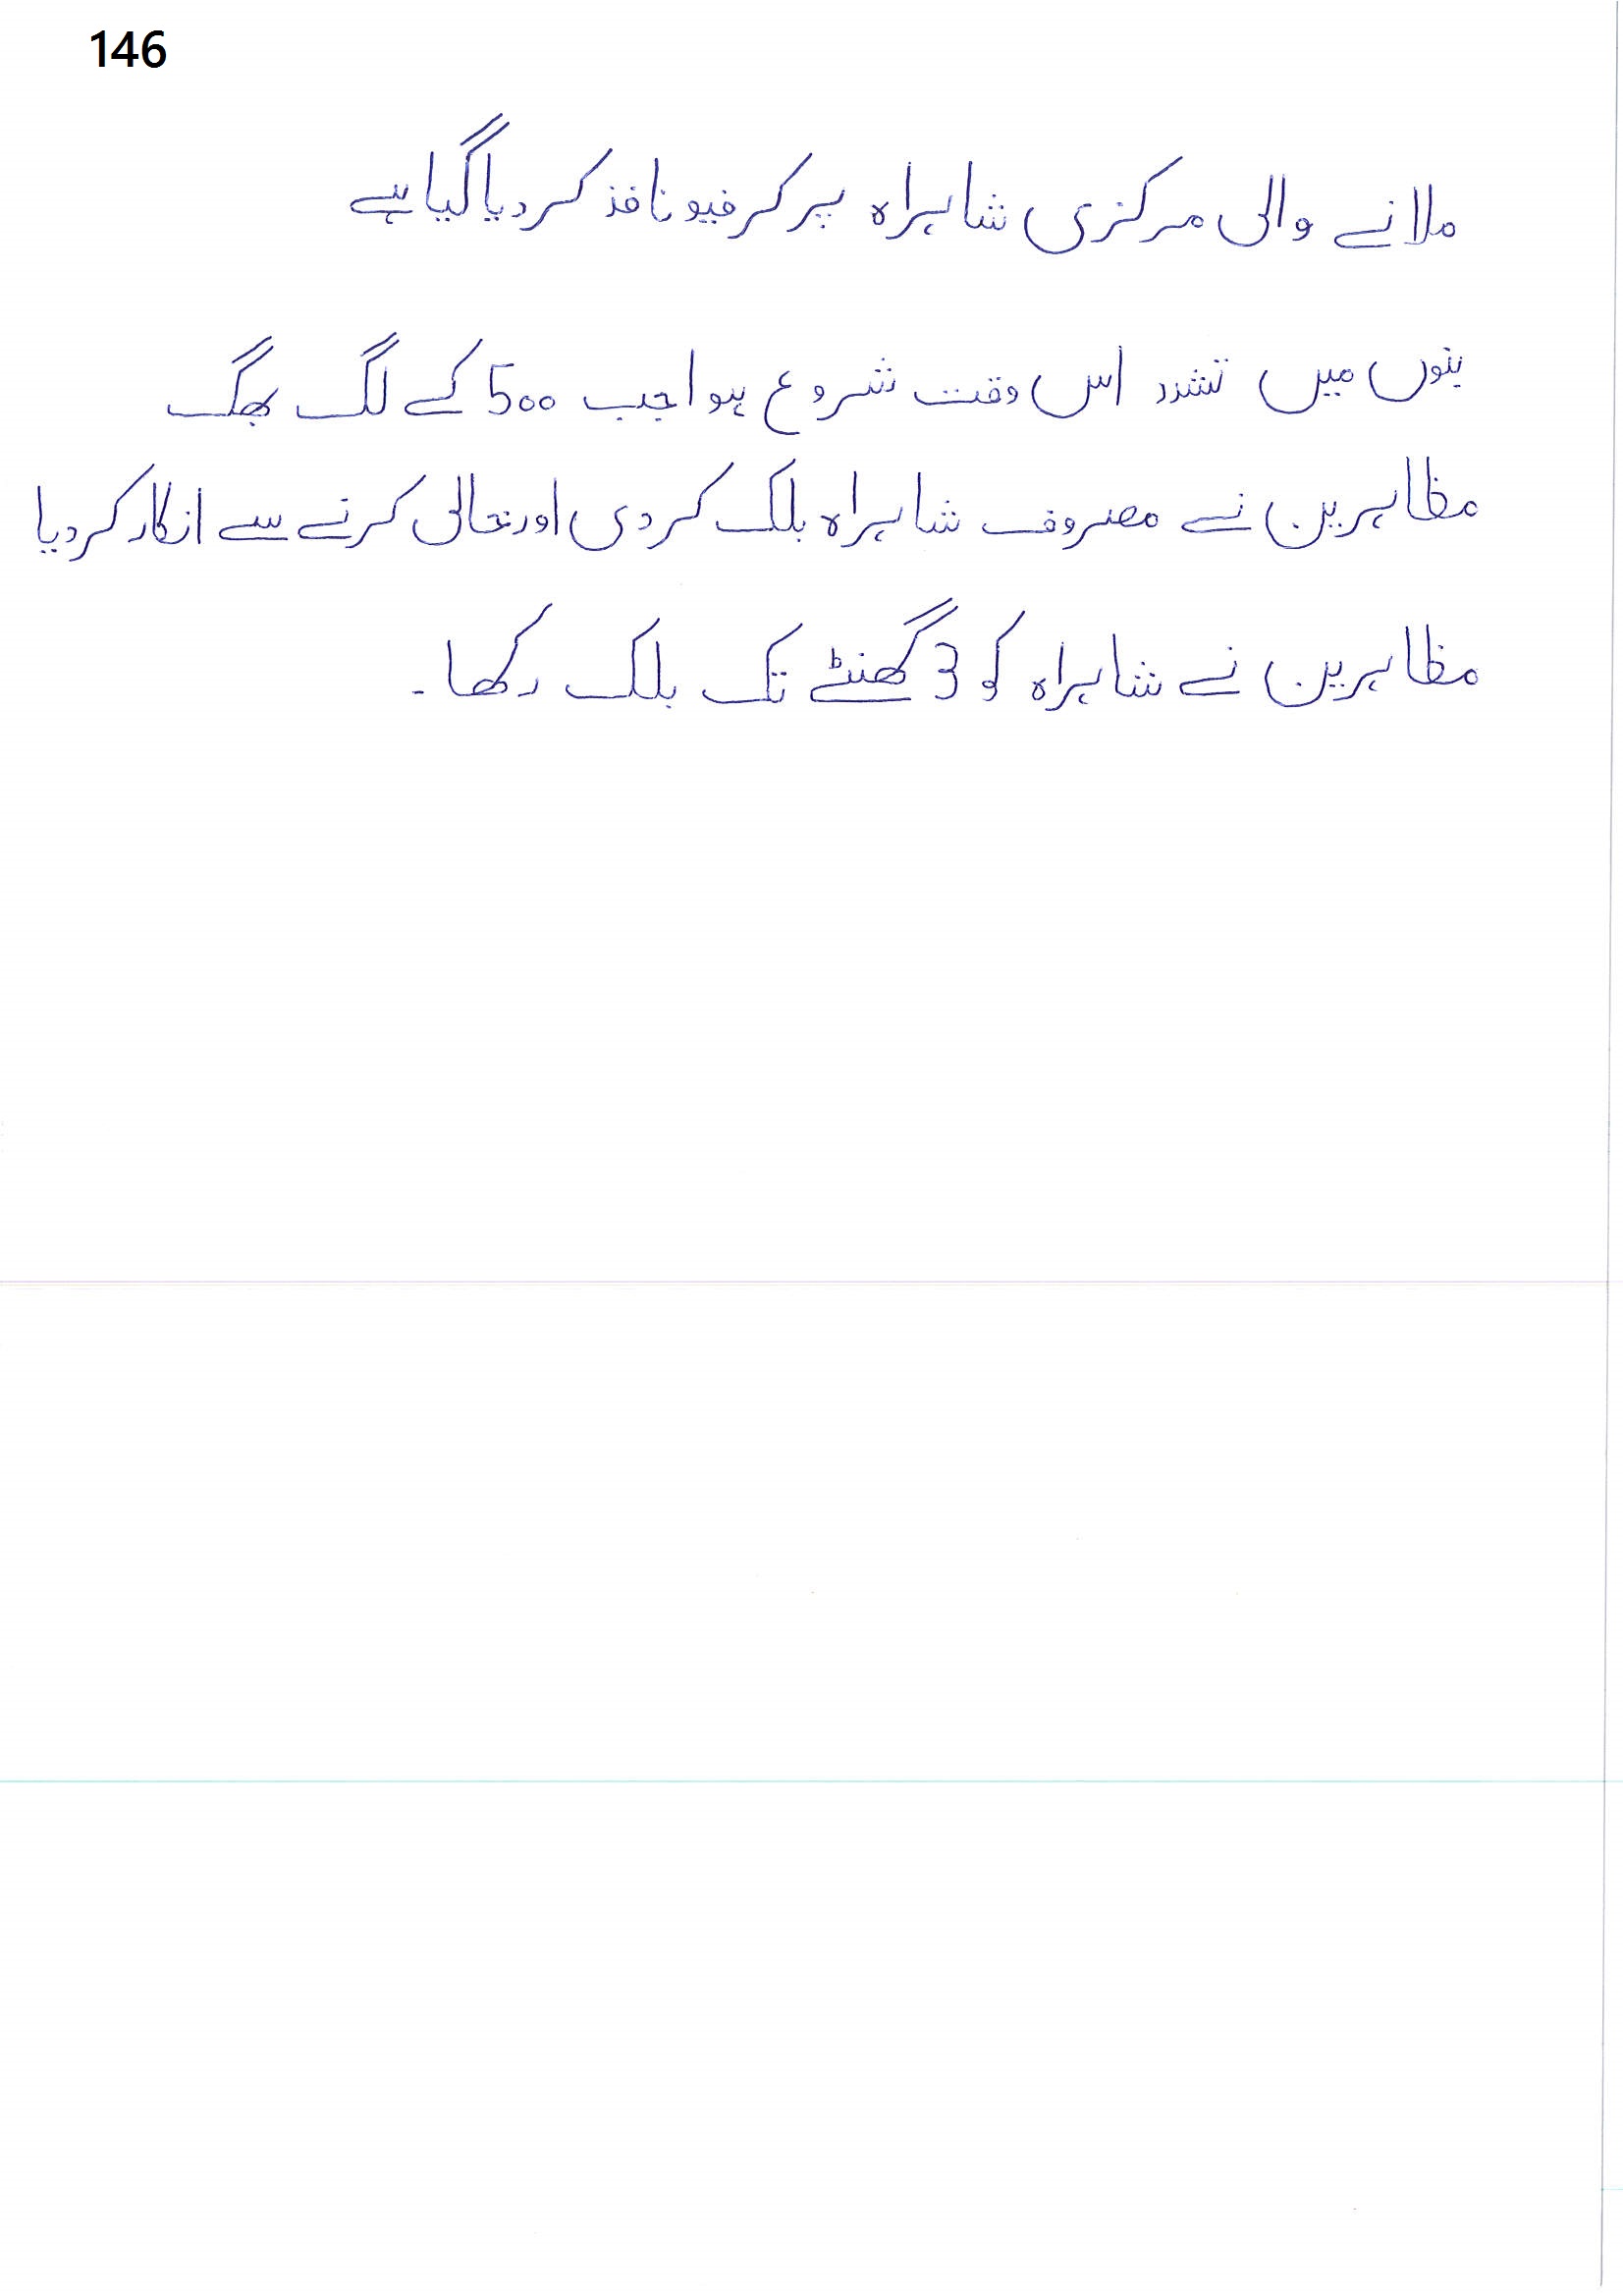 146
ملانے والی مرکزی شاہراہ پر کرفیو نافذ کر دیا گیا ہے
بنوں میں تشدد اس وقت شروع ہوا جب 500 کے لگ بھگ
مظاہرین نے مصروف شاہراہ بلک کر دی اور خالی کرنے سے انکار کر دیا
مظاہرین نے شاہراہ کو 3 گھنٹے تک بلک رکھا۔